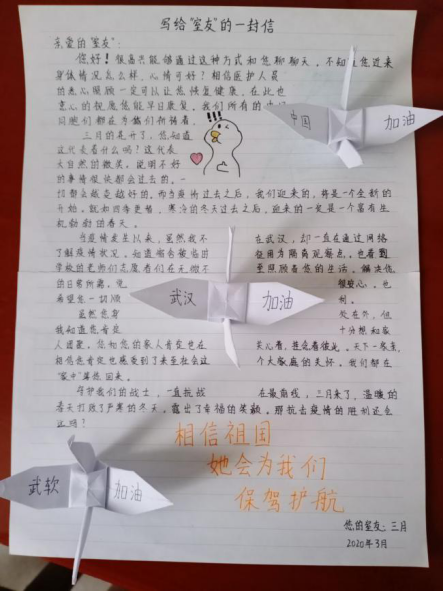 写给"室友"的一封信
亲爱的"室友":
您好!很高兴能够通过这种方式和您聊聊天,不知道您近来
身体情况怎么样,心情可好?相信医护人员
的悉心照顾一定可以让您恢复健康,在此也
衷心的祝愿您能早日康复,我们所有的
同胞们都在为你们祈祷着。
三月的花开了,您知道
这代表着什么吗?这代表
大自然的微笑,说明不好
的事情很快都会过去的,一
切都会越来越好的,而当疫情过去之后,我们迎来的,将是一个全新的
开始。就如四季更替,寒冷的冬天过去之后,迎来的一定是一个富有生
机勃勃的春天。
当疫情发生以来,虽然我不 在武汉,却一直在通过网络
了解疫情状况。知道
学校的老师们志愿者们在无微不 至照顾着您的生活,解决您
的日常所需,
希望您一切顺 利。
虽然您身 处在外,但
我知道您肯定 十分想和家
人团聚,您和您的家人肯定也在
相信您肯定也感受到了来自社会这 个大家庭的关怀,我们都在
守护我们的战士,一直抗战 在最前线,三月来了,温暖的
春天打败了严寒的冬天,露出了幸福的笑颜。那抗击疫情的胜利还会
远吗?
中国 加油
武汉 加油
武软 加油
相信祖国
她会为我们
保驾护航
您的室友:三月
2020年3月